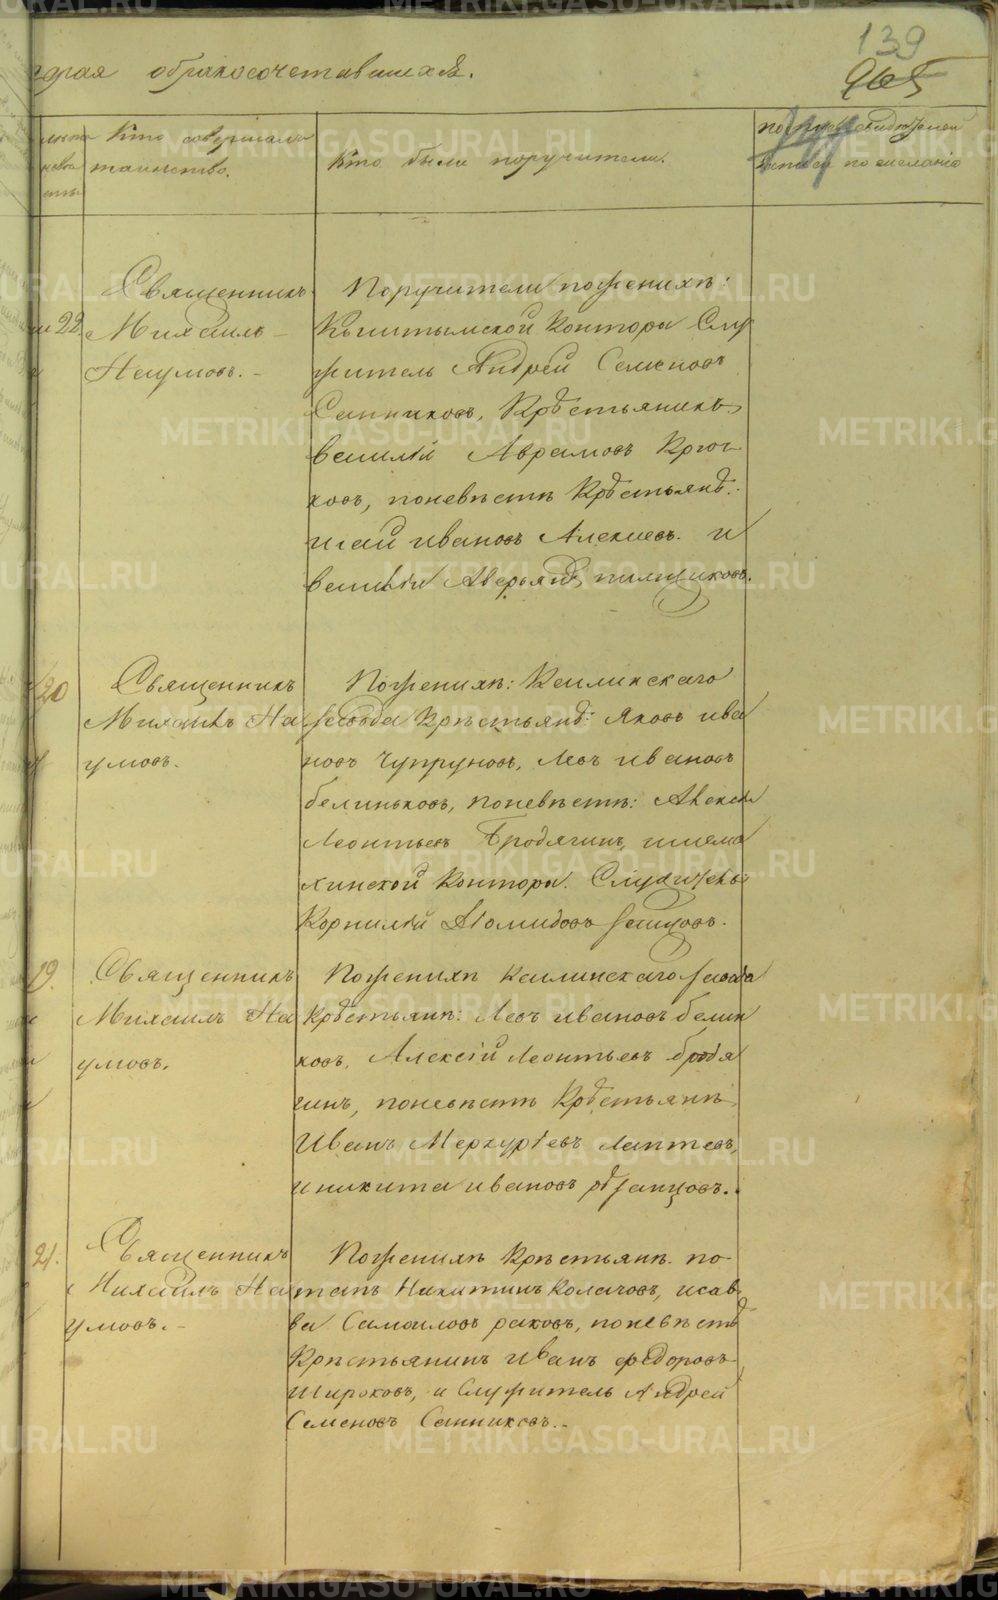 139
965
бракосочетавшихся.
Кто совершалъ
таинство.
Кто были поручители.
по желанію
22
Священникъ
Михаилъ
Наумовъ.
Поручители по женихѣ:
Кыштымской Конторы Слу
житель Андрей Семеновъ
Санниковъ, Крѣстьянинъ
Василій Аврамовъ Крюч
ковъ, по невѣстѣ Крѣстьянѣ:
Ивановъ и
Василій
20
Священникъ
Михаилъ На
умовъ.
По женихѣ: Каслинскаго
завода Крѣстьянѣ: Яковъ Ива
новъ Чупруновъ, Левъ Ивановъ
Белиньковъ, по невѣстѣ: Алексѣй
Леонтьевъ Бродягинъ,
Конторы. Служитель
Корнилій
19.
Священникъ
Михаилъ На
умовъ.
По женихѣ Каслинскаго завода
Крѣстьянѣ: Левъ Ивановъ Белин
ковъ, Алексій Леонтьевъ Бродя
гинъ, по невѣстѣ Крѣстьянѣ
Иванъ Меркурьевъ Лаптевъ,
и Никита Ивановъ
21.
Священникъ
Михаилъ На
умовъ.
По женихѣ Крѣстьянѣ По
тапъ Никитинъ Колачовъ, и Сав
ва Самоиловъ Раковъ, по невѣстѣ
Крѣстьянинъ Иванъ Федоровъ
Широковъ, и Служитель Андрей
Семеновъ Санниковъ.
METRIKI.GASO-URAL.RU